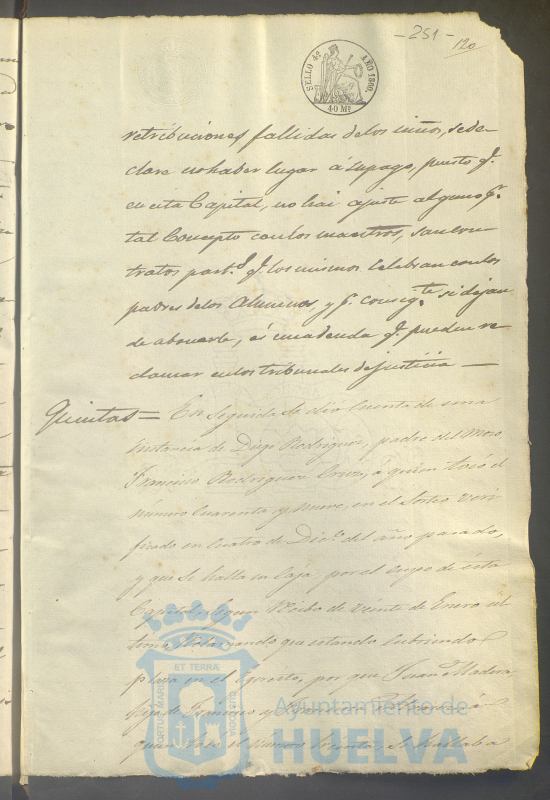 - 251 -
120
SELLO 4º AÑO 1860.
40 Ms
retribuciones fallidas de los niños, se de-
clare no haber lugar á su pago, puesto q.
en esta Capital, no hai ajuste alguno p.
tal Concepto con los maestros, son con
tratos part.s q. los mismos Celebran con los
padres de los Alumnos, y p. consig.te si dejan
de abonarle, es una deuda q. pueden re
clamar en los tribunales de justicia —
Quintas = En seguida se dió cuenta de una
instancia de Diego Rodriguez, padre del Mozo
Francisco Rodriguez Cruz, á quien tocó el
número cuarenta y nueve, en el sorteo veri
ficado en cuatro de Dic.e del año pasado,
y que se halla en Caja por el cupo de esta
Capital, segun Recibo de veinte de Enero ul
timo, que estando cubriendo
plaza en el Egercito, por Juan Madera
hijo de Francisco y á
quien tocó el número treinta, se hallaba
PORTUS MARIS ET TERRAE CUSTODIA
Ayuntamiento de
HUELVA